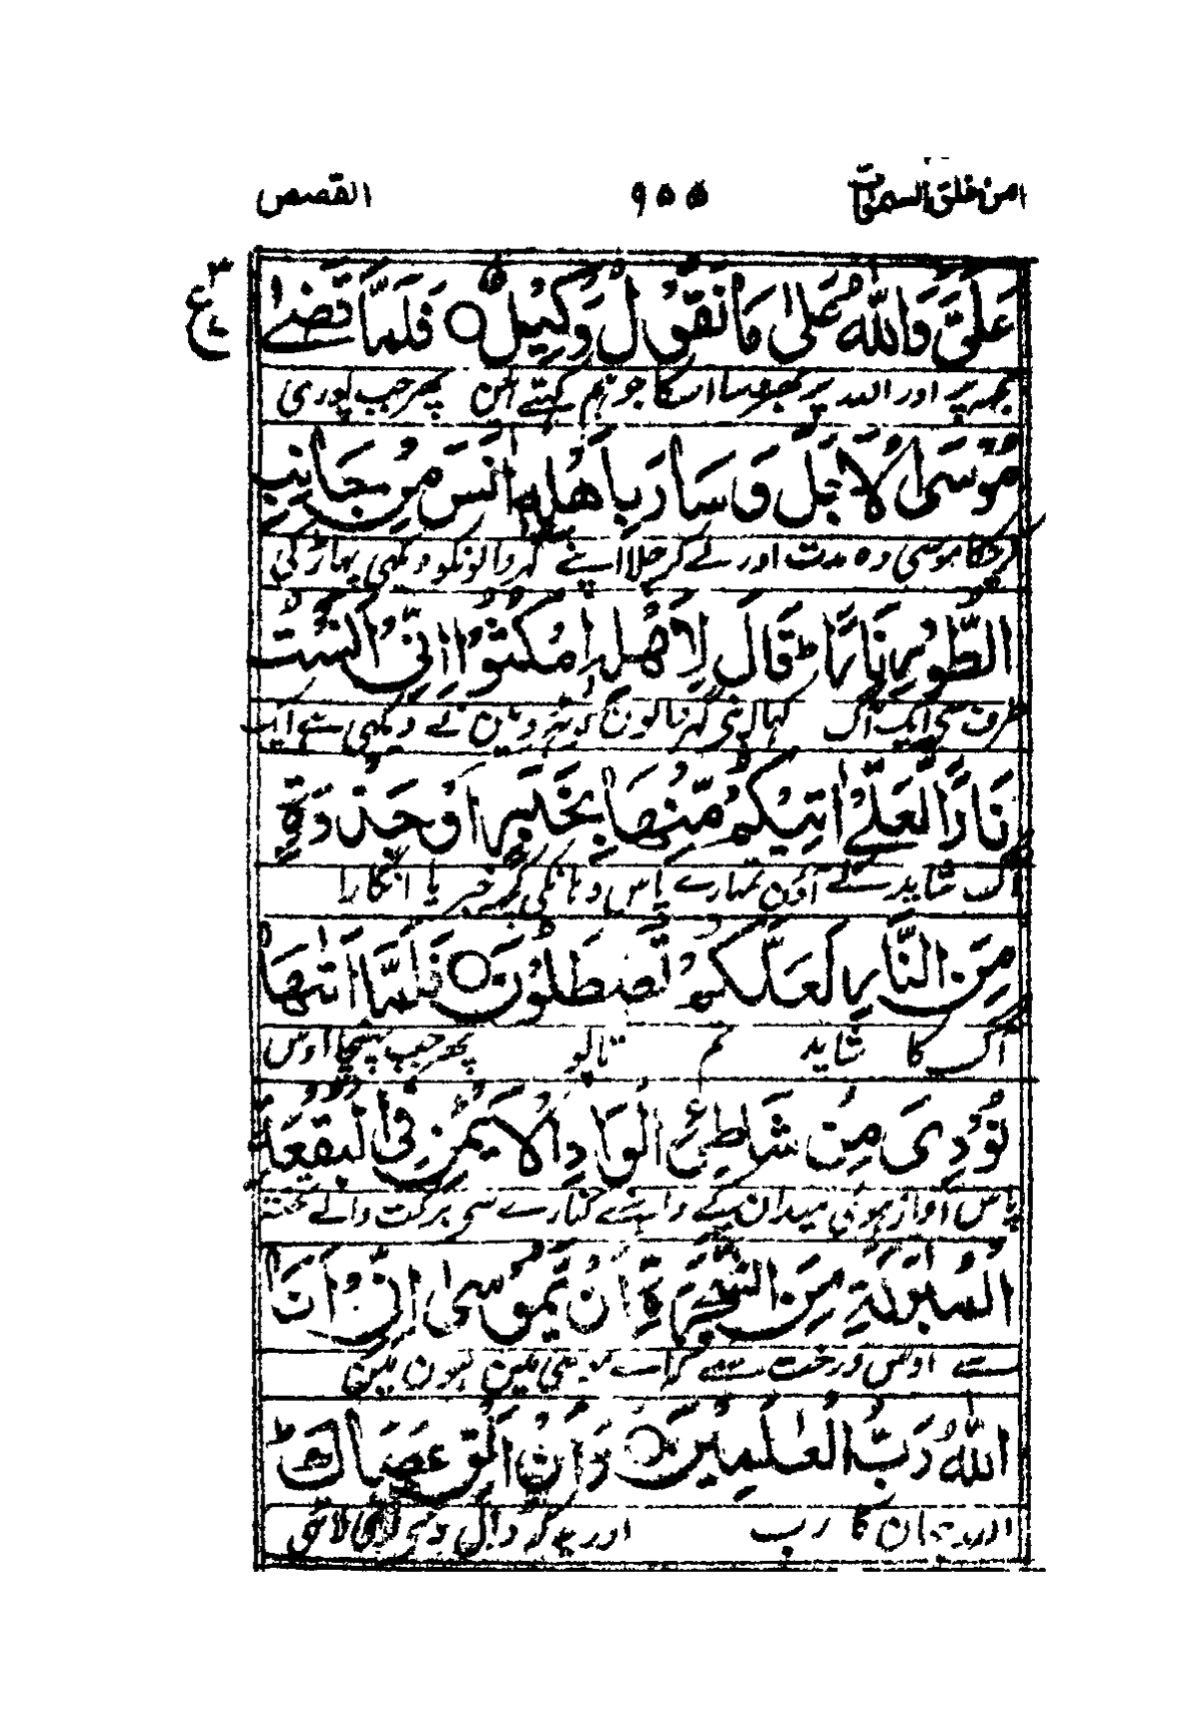 امن خلق السموات ۹۵۵ القصص
عَلَيَّ وَاللّٰهُ عَلٰى مَا نَقُوْلُ وَكِيْلٌ ۝ فَلَمَّا قَضٰى
ع ۳
مجھ پر اور اللہ پر بھروسا اسکا جو ہم کہتے ہین پھر جب پوری
مُوْسَى الْاَجَلَ وَسَارَ بِاَهْلِهٖ اٰنَسَ مِنْ جَانِبِ
کر چکا موسی وہ مدت اور لے کر چلا اپنے گھر والونکو دیکھی پہاڑ کی
الطُّوْرِ نَارًا ط قَالَ لِاَهْلِهِ امْكُثُوْا اِنِّيْ اٰنَسْتُ
طرف سی ایک آگ کہا اپنی گھر والون کو ٹہرو مین نے دیکھی ہے ایک
نَارًا لَّعَلِّيْ اٰتِيْكُمْ مِّنْهَا بِخَبَرٍ اَوْ جَذْوَةٍ
آگ شاید لے آؤن تمہارے پاس وہانکی کچھ خبر یا انگارا
مِّنَ النَّارِ لَعَلَّكُمْ تَصْطَلُوْنَ ۝ فَلَمَّا اَتٰىهَا
آگ کا شاید تم تاپو پھر جب پہنچا اوس
نُوْدِيَ مِنْ شَاطِئِ الْوَادِ الْاَيْمَنِ فِي الْبُقْعَةِ
پاس آواز ہوئی میدان کے داہنے کنارے سی برکت والے تختہ
الْمُبٰرَكَةِ مِنَ الشَّجَرَةِ اَنْ يّٰمُوْسٰى اِنِّيْ اَنَا
سے اوس درخت سے کہ اے موسی مین ہون مین
اللّٰهُ رَبُّ الْعٰلَمِيْنَ ۝ وَاَنْ اَلْقِ عَصَاكَ ط
اللہ جہان کا رب اور یہ کہ ڈال دے اپنی لاٹھی